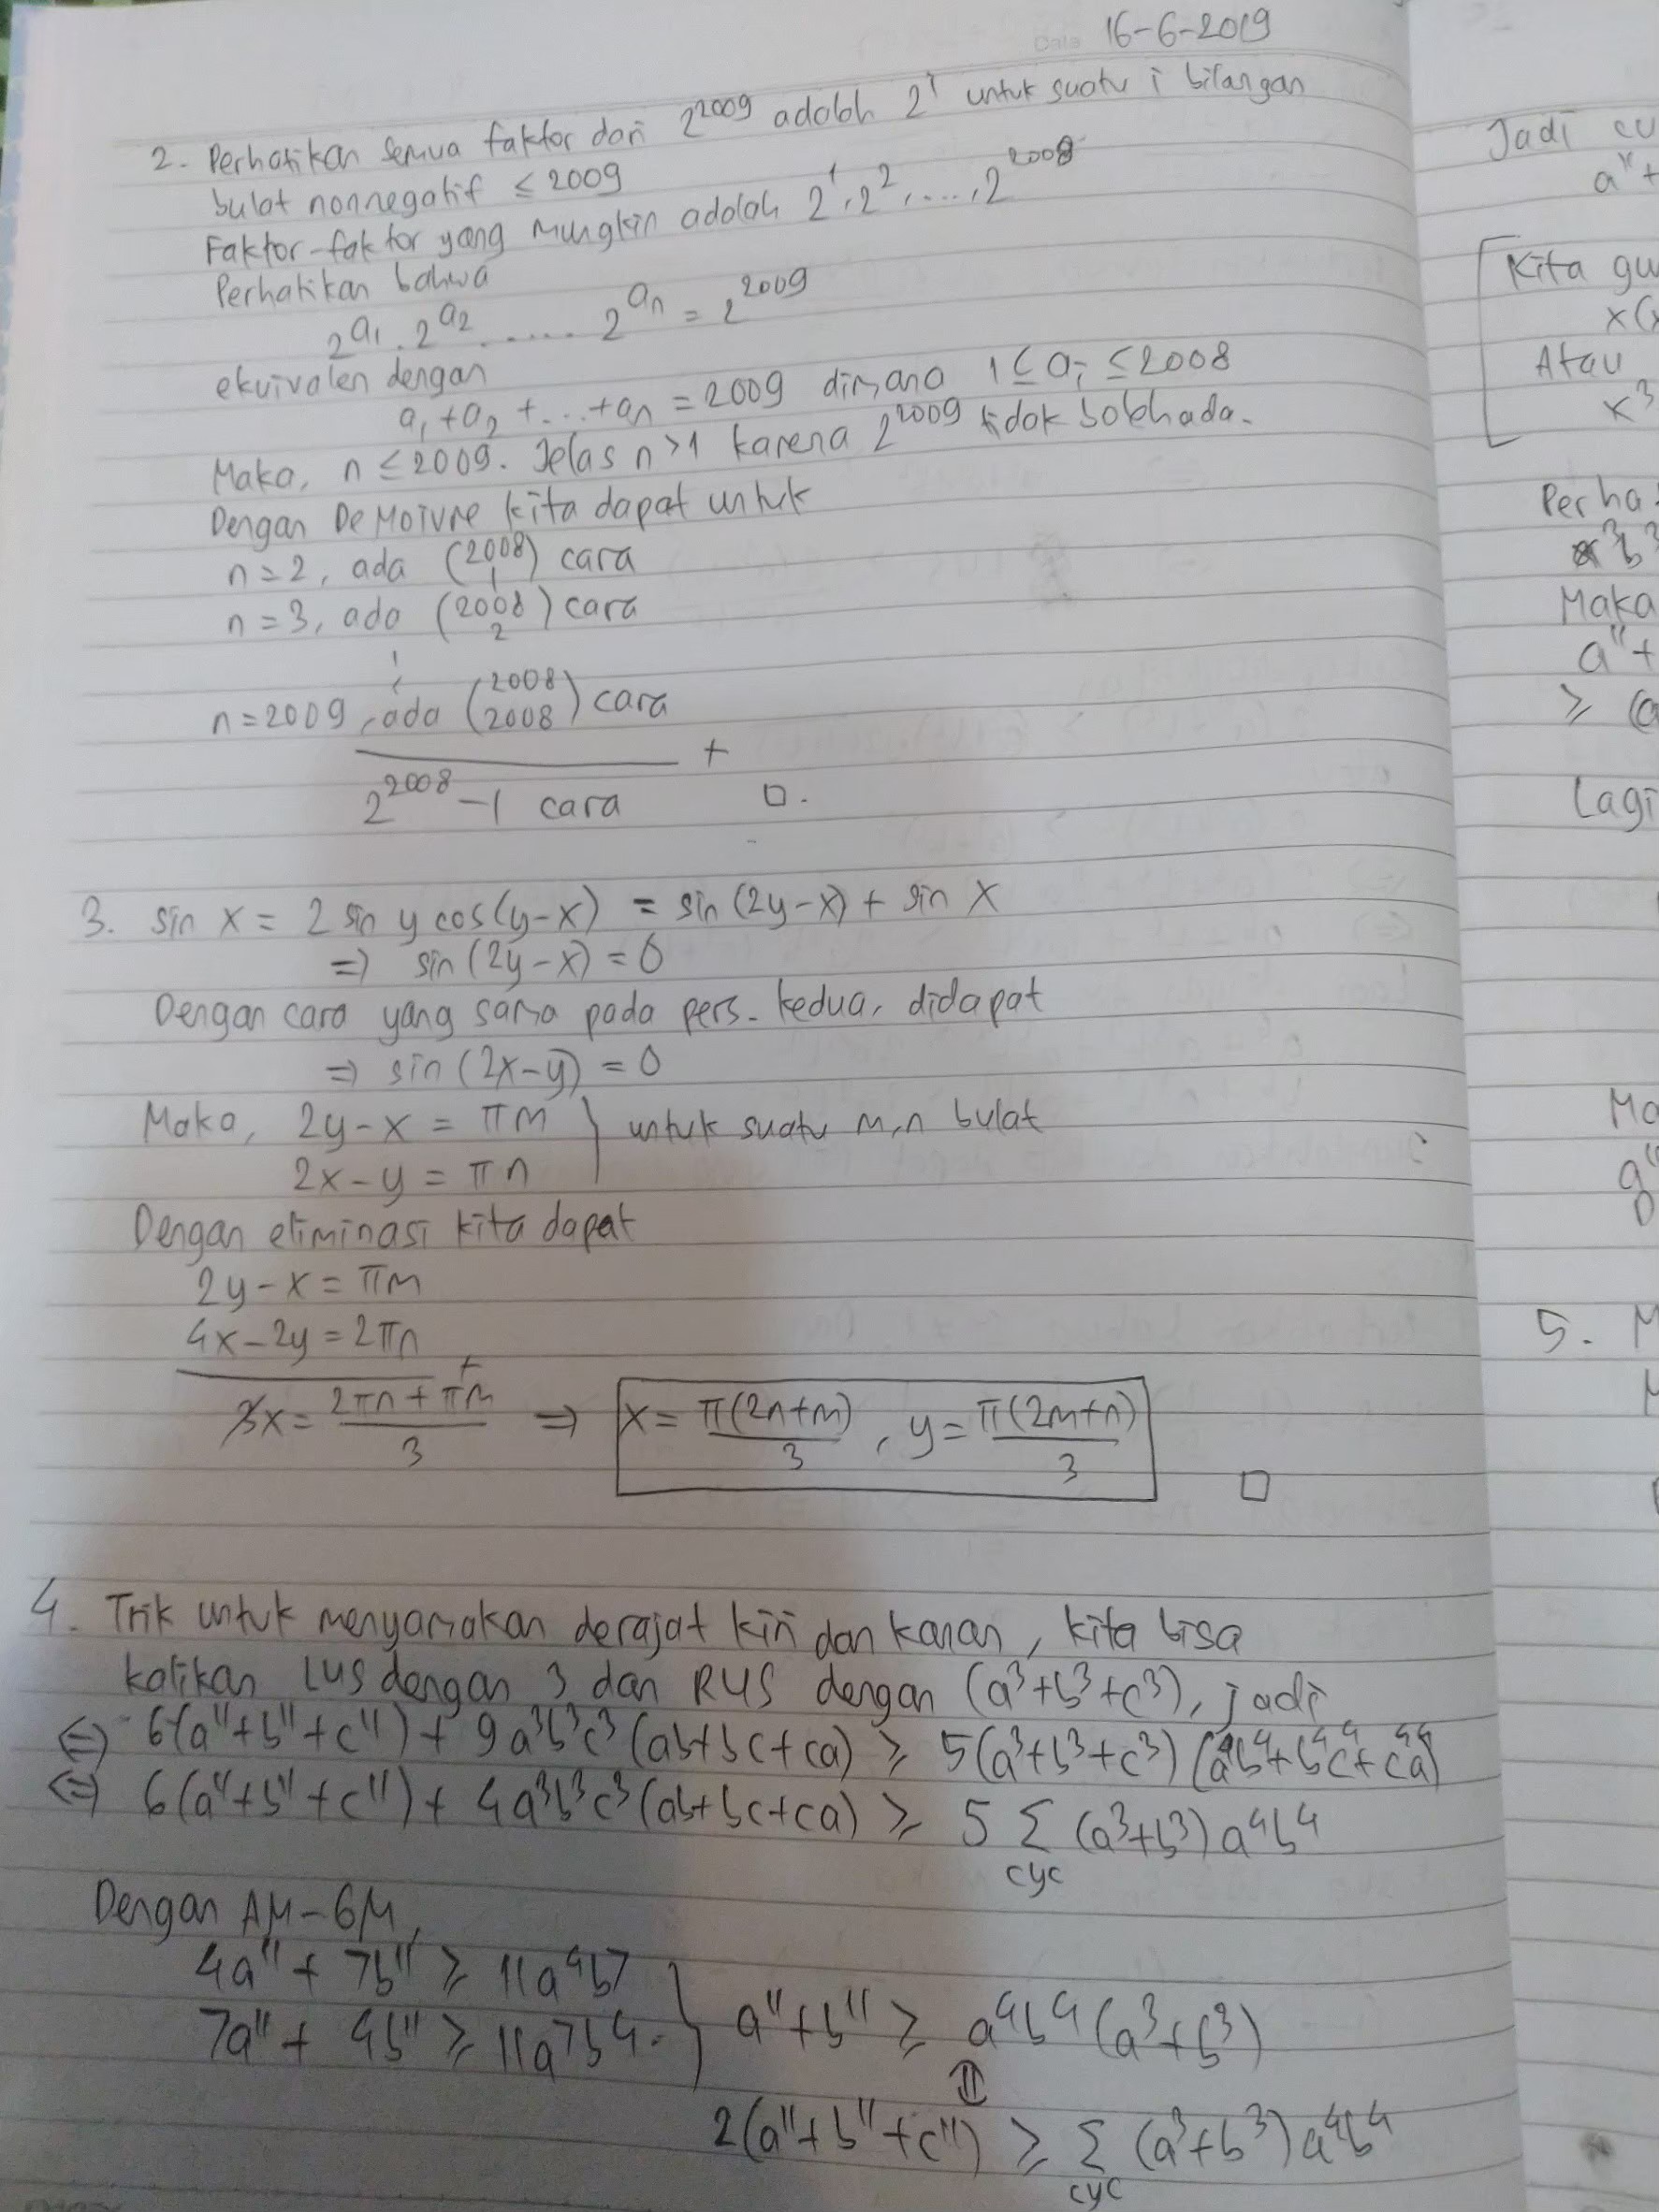 16-6-2019
2. Perhatikan semua faktor dari 2^2009 adalah 2^i untuk suatu i bilangan
bulat nonnegatif ≤ 2009
Faktor-faktor yang mungkin adalah 2^1, 2^2, ...., 2^2008
Perhatikan bahwa
2^a₁ . 2^a₂ ..... 2^aₙ = 2^2009
ekuivalen dengan
a₁ + a₂ + ... + aₙ = 2009 dimana 1 ≤ aᵢ ≤ 2008
Maka, n ≤ 2009. Jelas n > 1 karena 2^2009 tidak boleh ada.
Dengan De Moivre kita dapat untuk
n = 2, ada (2008 1) cara
n = 3, ada (2008 2) cara
⋮
n = 2009, ada (2008 2008) cara
+
2^2008 - 1 cara □.
3. sin x = 2 sin y cos(y-x) = sin(2y-x) + sin x
⇒ sin(2y-x) = 0
Dengan cara yang sama pada pers. kedua, didapat
⇒ sin(2x-y) = 0
Maka, 2y - x = πm } untuk suatu m,n bulat
2x - y = πn
Dengan eliminasi kita dapat
2y - x = πm
4x - 2y = 2πn
+
3x = (2πn + πm)/3 ⇒ x = π(2n+m)/3, y = π(2m+n)/3 □
4. Trik untuk menyamakan derajat kiri dan kanan, kita bisa
kalikan LUS dengan 3 dan RUS dengan (a³+b³+c³), jadi
⇔ 6(a¹¹+b¹¹+c¹¹) + 9a³b³c³(ab+bc+ca) ≥ 5(a³+b³+c³)(a⁴b⁴+b⁴c⁴+c⁴a⁴)
⇔ 6(a¹¹+b¹¹+c¹¹) + 4a³b³c³(ab+bc+ca) ≥ 5 Σ (a³+b³)a⁴b⁴
cyc
Dengan AM-GM,
4a¹¹ + 7b¹¹ ≥ 11a⁴b⁷
7a¹¹ + 4b¹¹ ≥ 11a⁷b⁴. } a¹¹+b¹¹ ≥ a⁴b⁴(a³+b³)
⇓
2(a¹¹+b¹¹+c¹¹) ≥ Σ (a³+b³)a⁴b⁴
cyc
Jadi
a¹¹+
Kita
x(
Atau
x³
Maka
a¹¹+
≥
Lagi
5. M